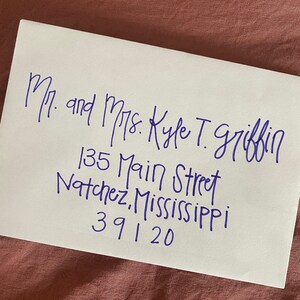 Mr. and Mrs. Kyle T. Griffin
135 Main Street
Natchez, Mississippi
39120